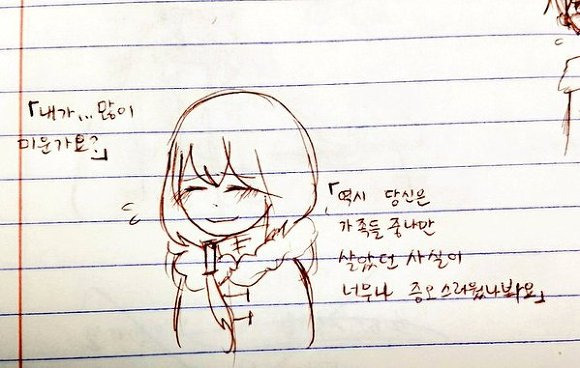 「내가... 많이
미운가요?」
「역시 당신은
가족들 중 나만
살았던 사실이
너무나 증오스러웠나봐요」